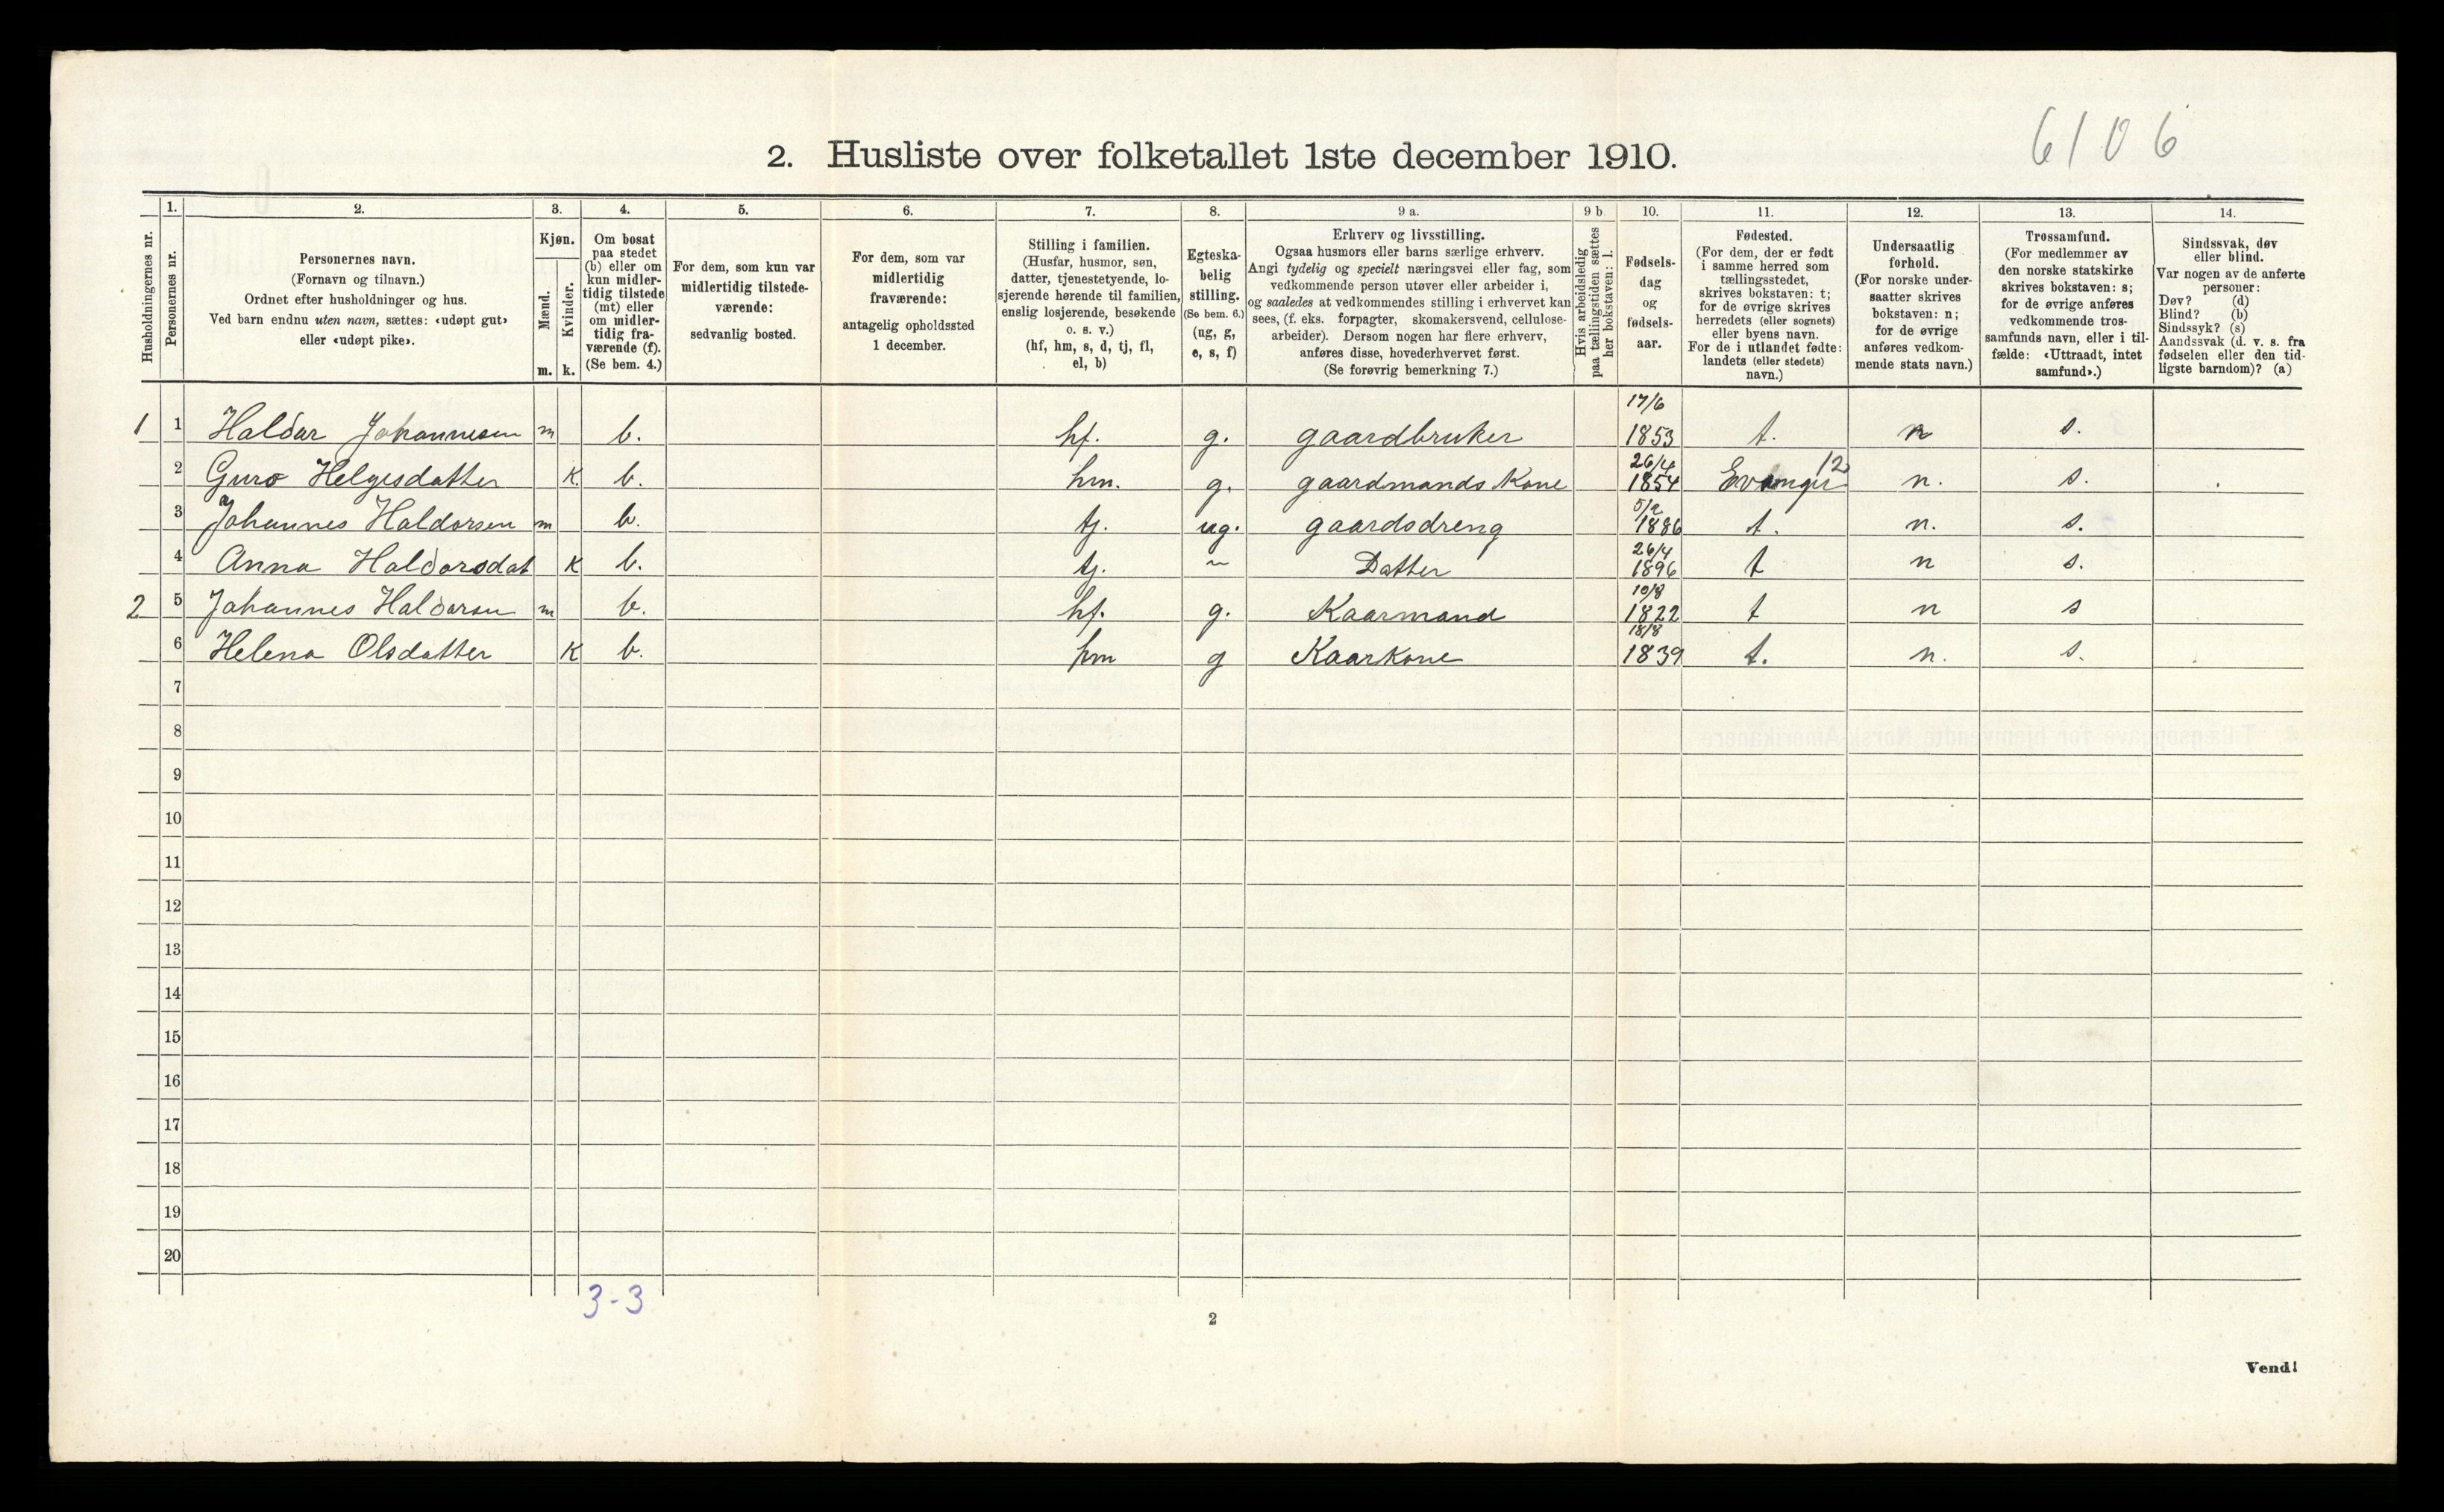 6106
2. Husliste over folketallet 1ste december 1910.
Husholdningernes nr.
1.
Personernes nr.
2.
Personernes navn.
(Fornavn og tilnavn.)
Ordnet efter husholdninger og hus.
Ved barn endnu uten navn, sættes: «udøpt gut»
eller «udøpt pike».
3.
Kjøn.
Mænd.
Kvinder.
m. k.
4.
Om bosat
paa stedet
(b) eller om
kun midler-
tidig tilstede
(mt) eller
om midler-
tidig fra-
værende (f).
(Se bem. 4.)
5.
For dem, som kun var
midlertidig tilstede-
værende:
sedvanlig bosted.
6.
For dem, som var
midlertidig
fraværende:
antagelig opholdssted
1 december.
7.
Stilling i familien.
(Husfar, husmor, søn,
datter, tjenestetyende, lo-
sjerende hørende til familien,
enslig losjerende, besøkende
o. s. v.)
(hf, hm, s, d, tj, fl,
el, b)
8.
Egteska-
belig
stilling.
(Se bem. 6.)
(ug, g,
e, s, f)
9 a.
Erhverv og livsstilling.
Ogsaa husmors eller barns særlige erhverv.
Angi tydelig og specielt næringsvei eller fag, som
vedkommende person utøver eller arbeider i,
og saaledes at vedkommendes stilling i erhvervet kan
sees, (f. eks. forpagter, skomakersvend, cellulose-
arbeider). Dersom nogen har flere erhverv,
anføres disse, hovederhvervet først.
(Se forøvrig bemerkning 7.)
9 b
Hvis arbeidsledig
paa tællingstiden sættes
her bokstaven: l.
10.
Fødsels-
dag
og
fødsels-
aar.
11.
Fødested.
(For dem, der er født
i samme herred som
tællingsstedet,
skrives bokstaven: t;
for de øvrige skrives
herredets (eller sognets)
eller byens navn.
For de i utlandet fødte:
landets (eller stedets)
navn.)
12.
Undersaatlig
forhold.
(For norske under-
saatter skrives
bokstaven: n;
for de øvrige
anføres vedkom-
mende stats navn.)
13.
Trossamfund.
(For medlemmer av
den norske statskirke
skrives bokstaven: s;
for de øvrige anføres
vedkommende tros-
samfunds navn, eller i til-
fælde: «Uttraadt, intet
samfund».)
14.
Sindssvak, døv
eller blind.
Var nogen av de anførte
personer:
Døv? (d)
Blind? (b)
Sindssyk? (s)
Aandssvak (d. v. s. fra
fødselen eller den tid-
ligste barndom)? (a)
1 1 Haldar Johannesen m b. hf. g. gaardbruker 17/6 1853 t. n s.
2 Guro Helgesdatter K b. hm. g. gaardmands Kone 26/4 1854 Evanger 12 n. s.
3 Johannes Haldorsen m b. tj. ug. gaardsdreng 5/2 1886 t. n. s.
4 Anna Haldorsdat K b. tj. " Datter 26/4 1896 t n s.
2 5 Johannes Haldorsn m b. hf. g. Kaarmand 10/8 1822 t n s
6 Helena Olsdatter K b. hm g Kaarkone 18/8 1839 t. n. s.
7
8
9
10
11
12
13
14
15
16
17
18
19
20
3-3
2
Vend!